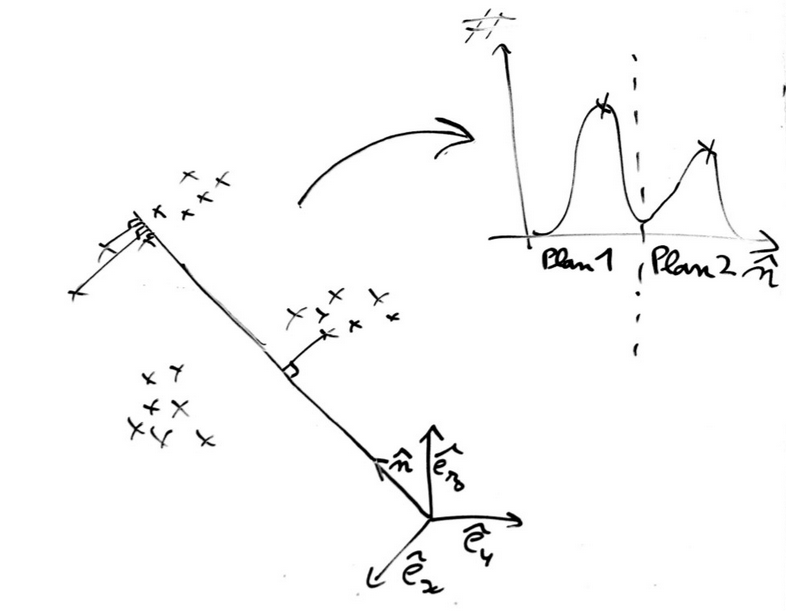 #
Plan 1 Plan 2 n̂
n̂ ê_z
ê_y
ê_x